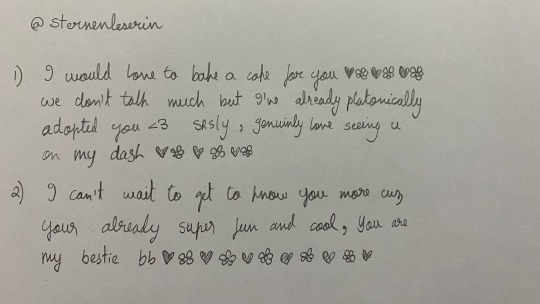 @sternenleserin
1) I would love to bake a cake for you ♥❀♥❀♥❀
we don't talk much but I've already platonically
adopted you <3 srsly, genuinly love seeing u
on my dash ♥❀♥❀♥❀
2) I can't wait to get to know you more cuz
your already super fun and cool, you are
my bestie bb ♥❀♥❀♥❀♥❀♥❀♥